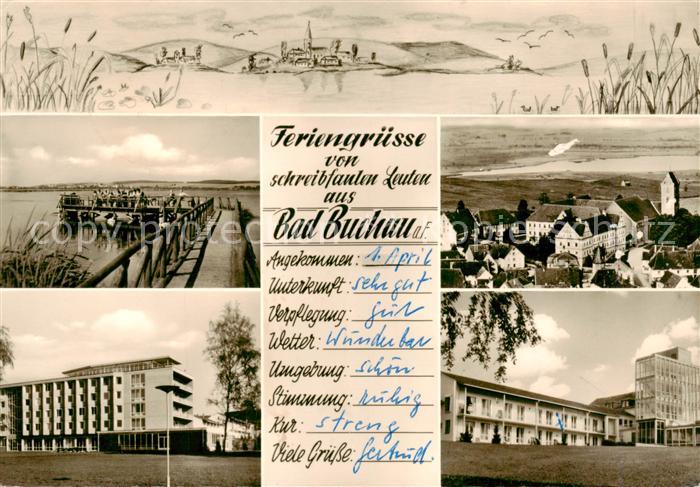 Feriengrüsse
von
schreibfaulen Leuten
aus
Bad Buchau a.F.
Angekommen: 1. April
Unterkunft: sehr gut
Verpflegung: gut
Wetter: Wunderbar
Umgebung: schön
Stimmung: ruhig
Kur: streng
Viele Grüße: Gertrud.